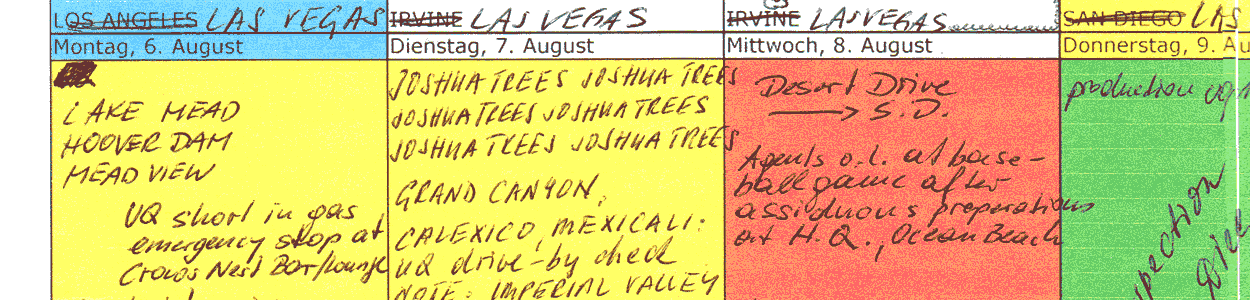 LOS ANGELES LAS VEGAS
Montag, 6. August
LAKE MEAD
HOOVER DAM
MEAD VIEW
UQ short in gas
emergency stop at
Crows Nest Bar/Lounge
IRVINE LAS VEGAS
Dienstag, 7. August
JOSHUA TREES JOSHUA TREES
JOSHUA TREES JOSHUA TREES
JOSHUA TREES JOSHUA TREES
GRAND CANYON,
CALEXICO, MEXICALI:
UQ drive-by check
NOTE: IMPERIAL VALLEY
IRVINE LAS VEGAS
Mittwoch, 8. August
Desert Drive
→ S.D.
Agents o.l. at base-
ball game after
assiduous preparations
at H.Q., Ocean Beach
SAN DIEGO LAS
Donnerstag, 9. Au
production